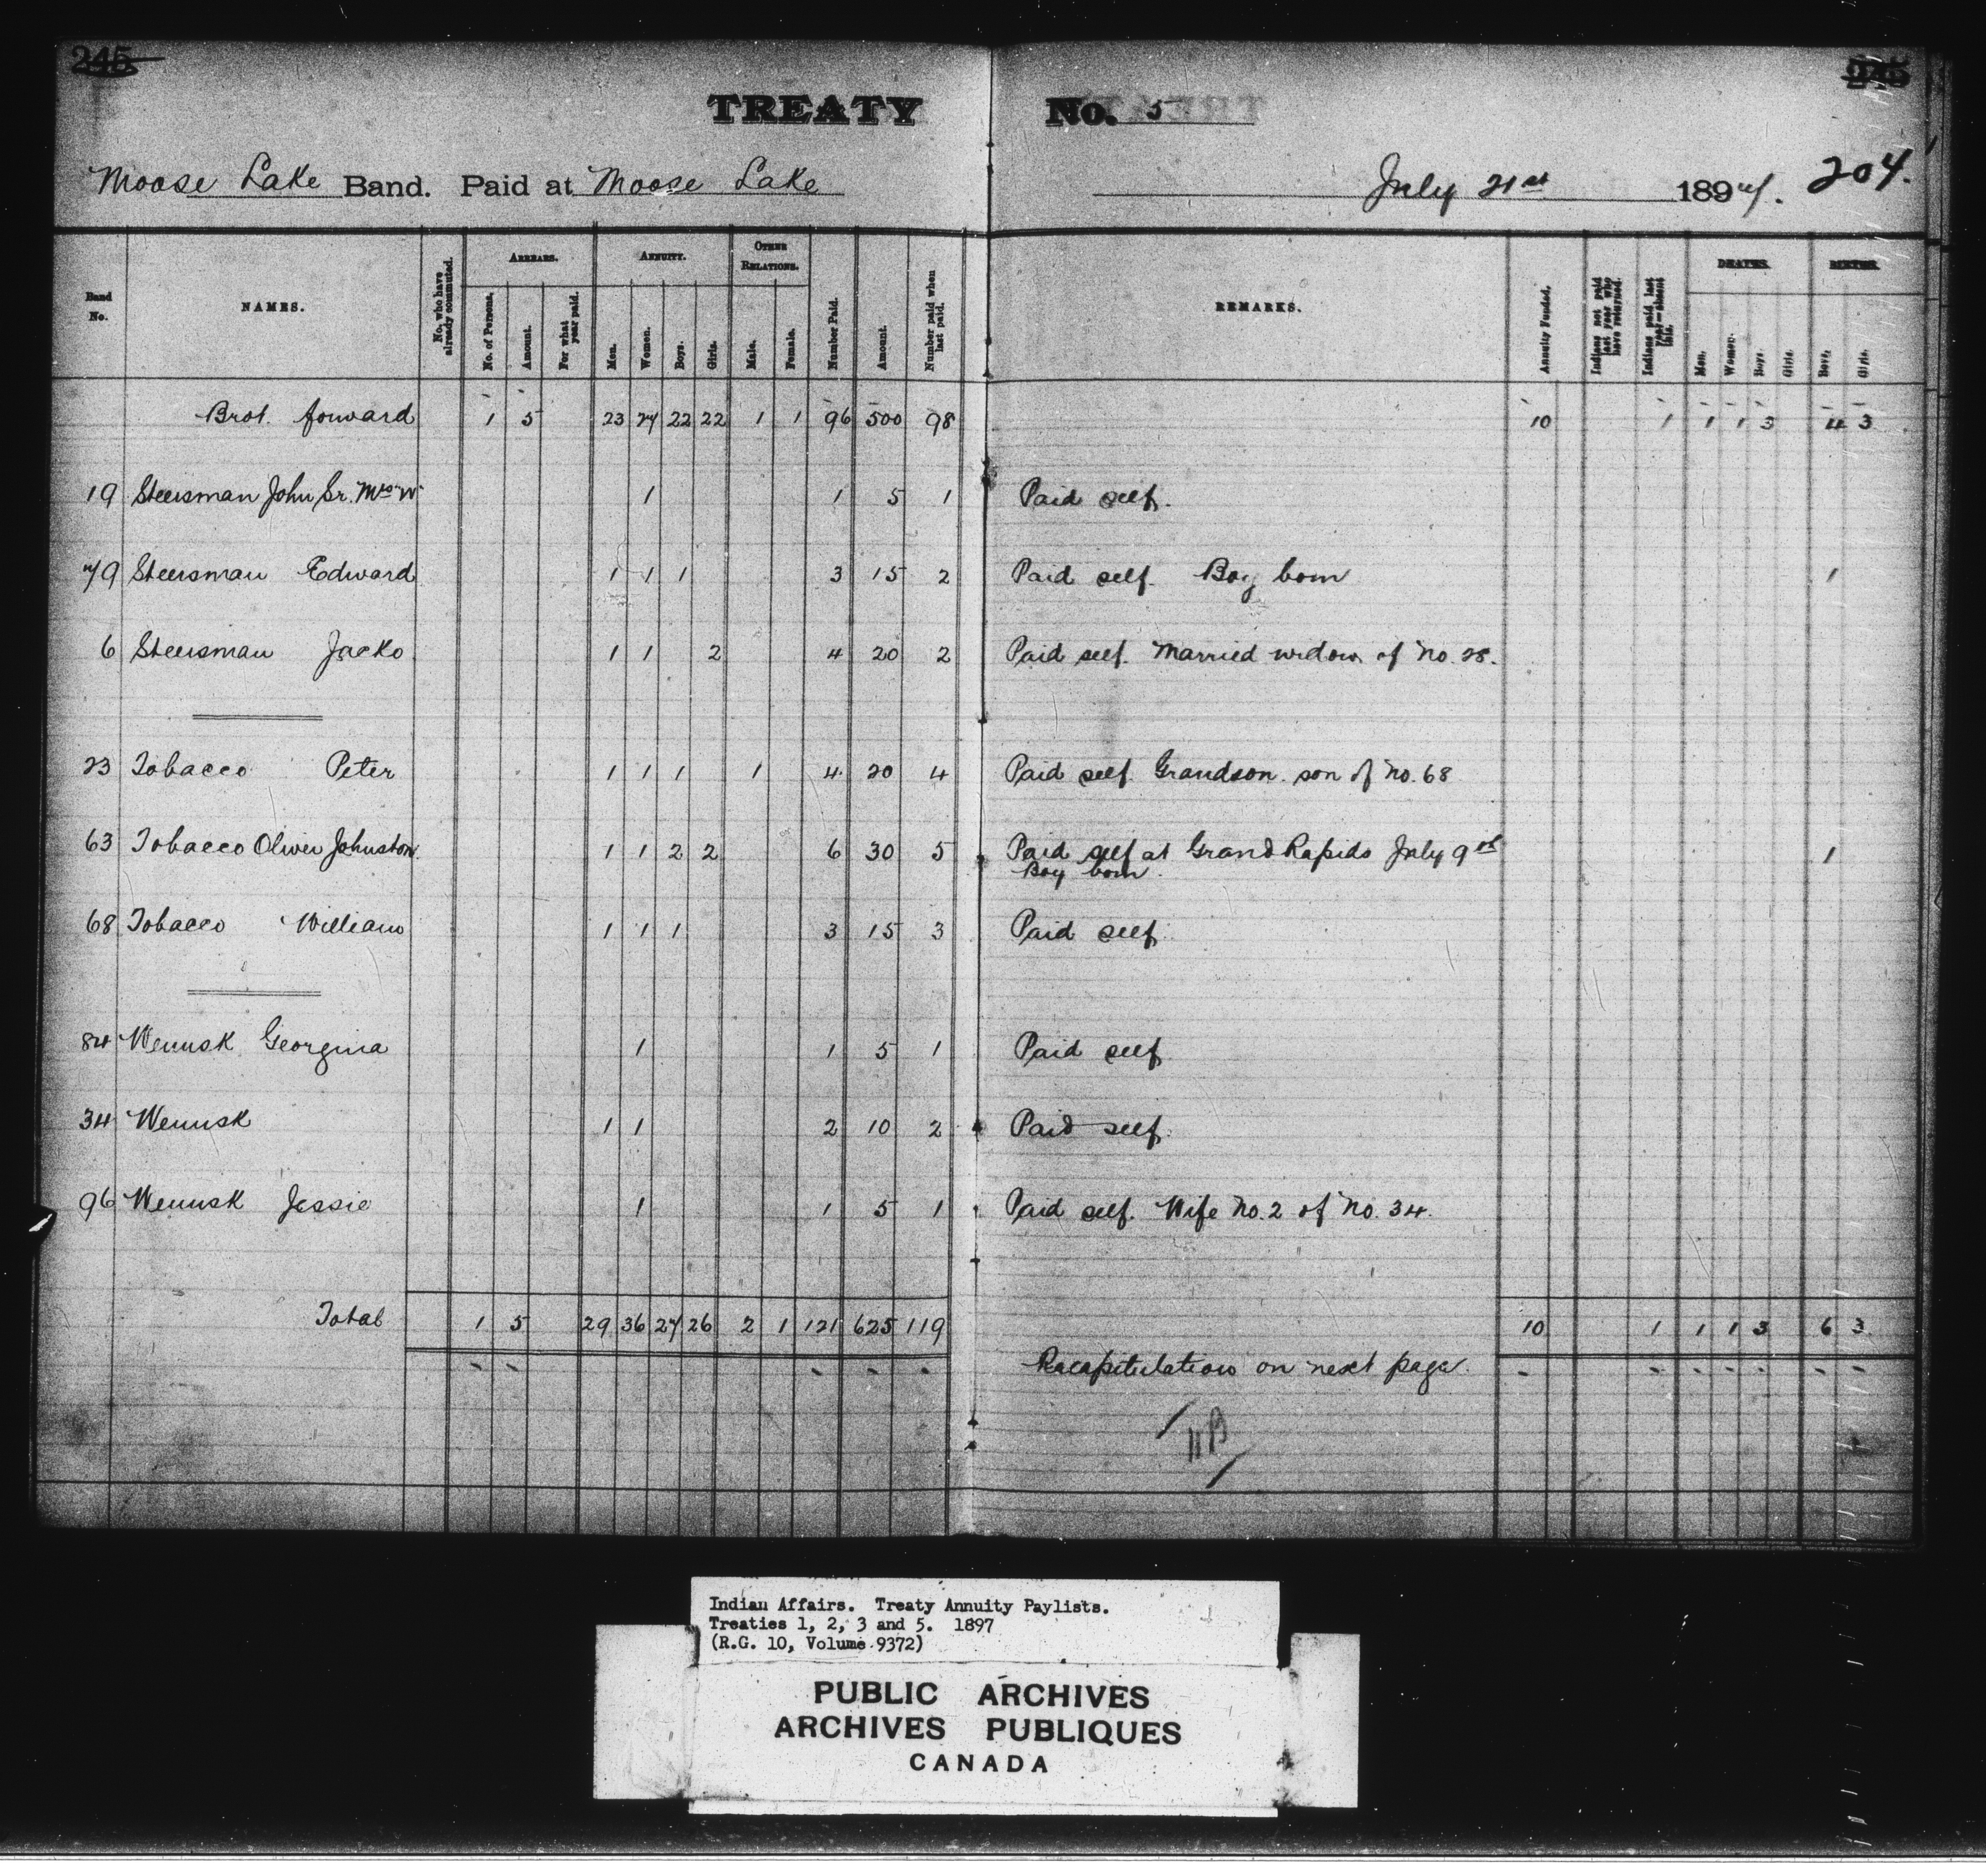 245 245
TREATY No. 5
Moose Lake Band. Paid at Moose Lake July 21st 1897. 204.
Band No. NAMES. No. who have already commuted. ARREARS. No. of Persons. Amount. For what year paid. ANNUITY. Men. Women. Boys. Girls. OTHER RELATIONS. Male. Female. Number Paid. Amount. Number paid when last paid. REMARKS. Annuity Funded. Indians not paid last year who have returned. Indians paid last year—absent this. DEATHS. Men. Women. Boys. Girls. BIRTHS. Boys. Girls.
Brot. forward 1 5 23 27 22 22 1 1 96 500 98 10 1 1 1 3 4 3
19 Steersman John Sr. Mrs W 1 1 5 1 Paid self.
79 Steersman Edward 1 1 1 3 15 2 Paid self. Boy born 1
6 Steersman Jacko 1 1 2 4 20 2 Paid self. Married widow of No. 28.
23 Tobacco Peter 1 1 1 1 4 20 4 Paid self. Grandson son of No. 68
63 Tobacco Oliver Johnston 1 1 2 2 6 30 5 Paid self at Grand Rapids July 9th 1
Boy born.
68 Tobacco William 1 1 1 3 15 3 Paid self.
84 Wenusk Georgina 1 1 5 1 Paid self
34 Wenusk 1 1 2 10 2 Paid self.
96 Wenusk Jessie 1 1 5 1 Paid self. Wife No. 2 of No. 34.
Total 1 5 29 36 27 26 2 1 121 625 119 10 1 1 1 3 6 3
Recapitulation on next page.
Indian Affairs. Treaty Annuity Paylists.
Treaties 1, 2, 3 and 5. 1897
(R.G. 10, Volume 9372)
PUBLIC ARCHIVES
ARCHIVES PUBLIQUES
CANADA